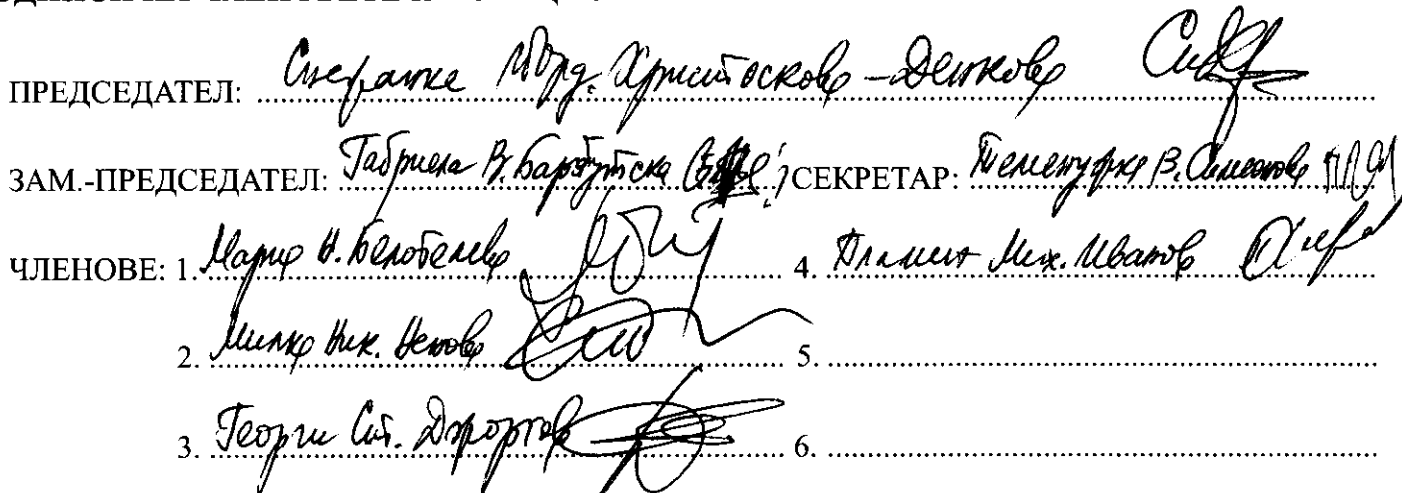 ПРЕДСЕДАТЕЛ: Снежанка Йорд. Христоскова - Денкова
ЗАМ.-ПРЕДСЕДАТЕЛ: Габриела В. СЕКРЕТАР: Теменужка В. Симеонова
ЧЛЕНОВЕ: 1. Мария Н. Белобелева 4. Пламен Мих. Иванов
2. Милка Ник. Ненова 5.
3. Георги Ст. 6.